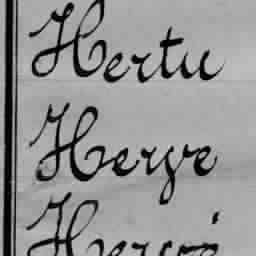 Hertu
Herve